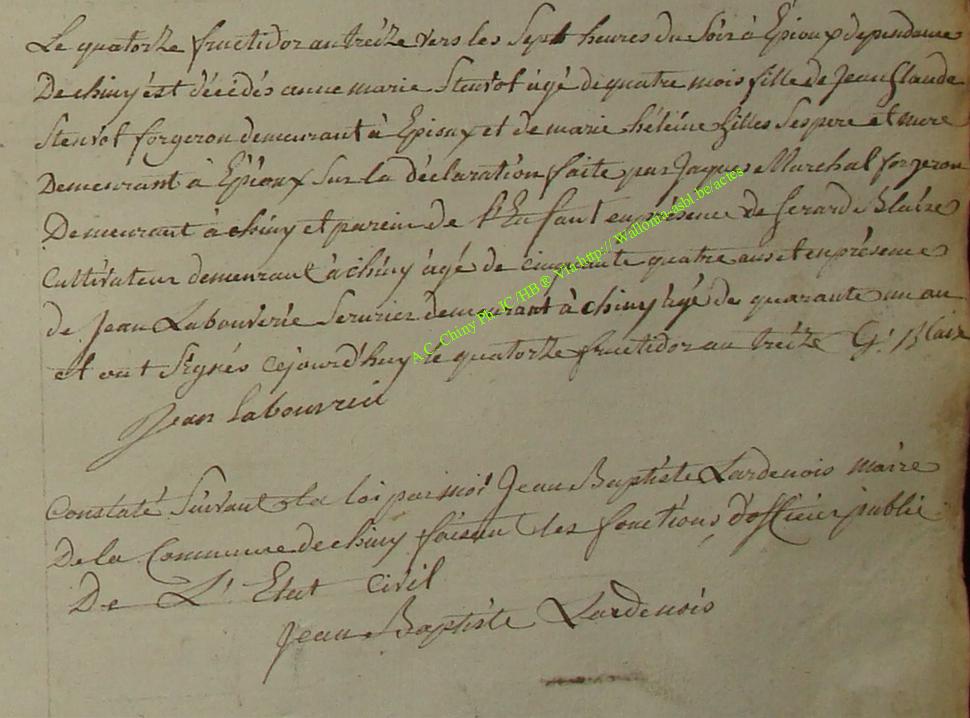 Le quatorze fructidor an treize vers les Sept heures du Soir à Epioux dependance
De chiny est décédés anne marie Stenvot agé de quatre mois fille de Jean Claude
Stenvot forgeron demeurant à Epioux et de marie héléine Gilles Ses pere et mere
Demeurant à Epioux Sur la déclaration faite par Jaque Marchal forgeron
Demeurant à chiny et parein de l'Enfant en présence de Gerard Blaise
Cultivateur demeurant à chiny agé de cinquante quatre ans et en présence
de Jean Labouverie Serurier demeurant à chiny agé de quarante un an
et ont Signés cejourd'huy le quatorze fructidor an treize G. Blaise
Jean Labouvrie
A.C. Chiny Ph. JC /HB ® Via http:// Wallonia-asbl.be/actes
Constaté Suivant la loi par moi Jean Baptiste Lardenois maire
De la Commune de chiny faisant les fonctions d'officier public
De L'Etat Civil
Jean Baptiste Lardenois